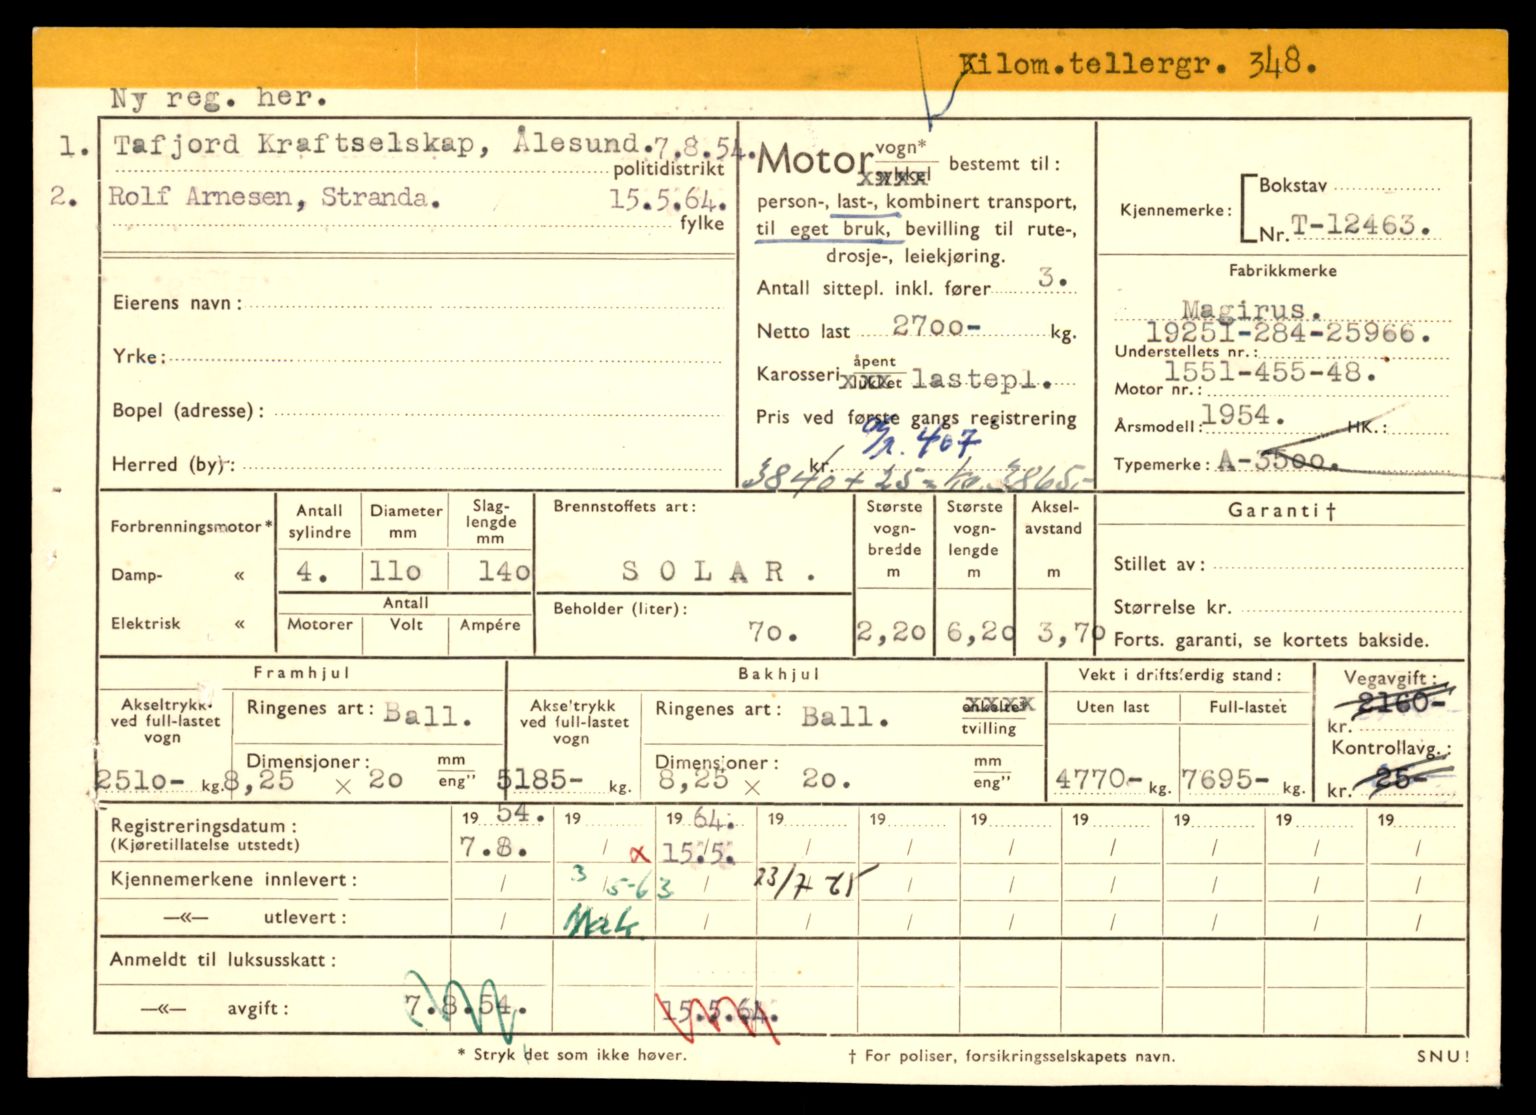 Kilom.tellergr. 348.
Ny reg. her.
1. Tafjord Kraftselskap, Ålesund. 7.8.54.
politidistrikt
2. Rolf Arnesen, Stranda. 15.5.64.
fylke
Eierens navn:
Yrke:
Bopel (adresse):
Herred (by):
Motor vogn* sykkel bestemt til:
person-, last-, kombinert transport,
til eget bruk, bevilling til rute-,
drosje-, leiekjøring.
Antall sittepl. inkl. fører 3.
Netto last 2700- kg.
Karosseri åpent lukket lastepl.
Pris ved første gangs registrering
407
kr.
3840 + 25 = kr. 3865,-
Kjennemerke: Bokstav
Nr. T-12463.
Fabrikkmerke
Magirus.
19251-284-25966.
Understellets nr.:
1551-455-48.
Motor nr.:
Årsmodell: 1954. HK.:
Typemerke: A-3500.
Forbrenningsmotor*
Damp- «
Elektrisk «
Antall sylindre
Diameter mm
Slag-lengde mm
4. 110 140
Antall
Motorer Volt Ampére
Brennstoffets art:
SOLAR.
Beholder (liter):
70.
Største vogn-bredde m
2,20
Største vogn-lengde m
6,20
Aksel-avstand m
3,70
Garanti †
Stillet av:
Størrelse kr.
Forts. garanti, se kortets bakside.
Framhjul
Akseltrykk ved full-lastet vogn
2510- kg.
Ringenes art: Ball.
Dimensjoner: mm eng"
8,25 x 20
Bakhjul
Akseltrykk ved full-lastet vogn
5185- kg.
Ringenes art: Ball. enkelte* tvilling
Dimensjoner: mm eng"
8,25 x 20.
Vekt i driftsferdig stand:
Uten last Full-lastet
4770- kg. 7695- kg.
Vegavgift:
2160-
kr.
Kontrollavg.:
kr. 25-
Registreringsdatum: 19 54. 19 19 64. 19 19 19 19 19 19 19
(Kjøretillatelse utstedt) 7.8. / x 15.5. / / / / / / /
Kjennemerkene innlevert: / 3/5-63 / 23/7 65 / / / / / /
—«— utlevert: / / / / / / / / /
Anmeldt til luksusskatt:
—«— avgift: 7.8.54. 15.5.64.
* Stryk det som ikke høver.
† For poliser, forsikringsselskapets navn.
SNU!